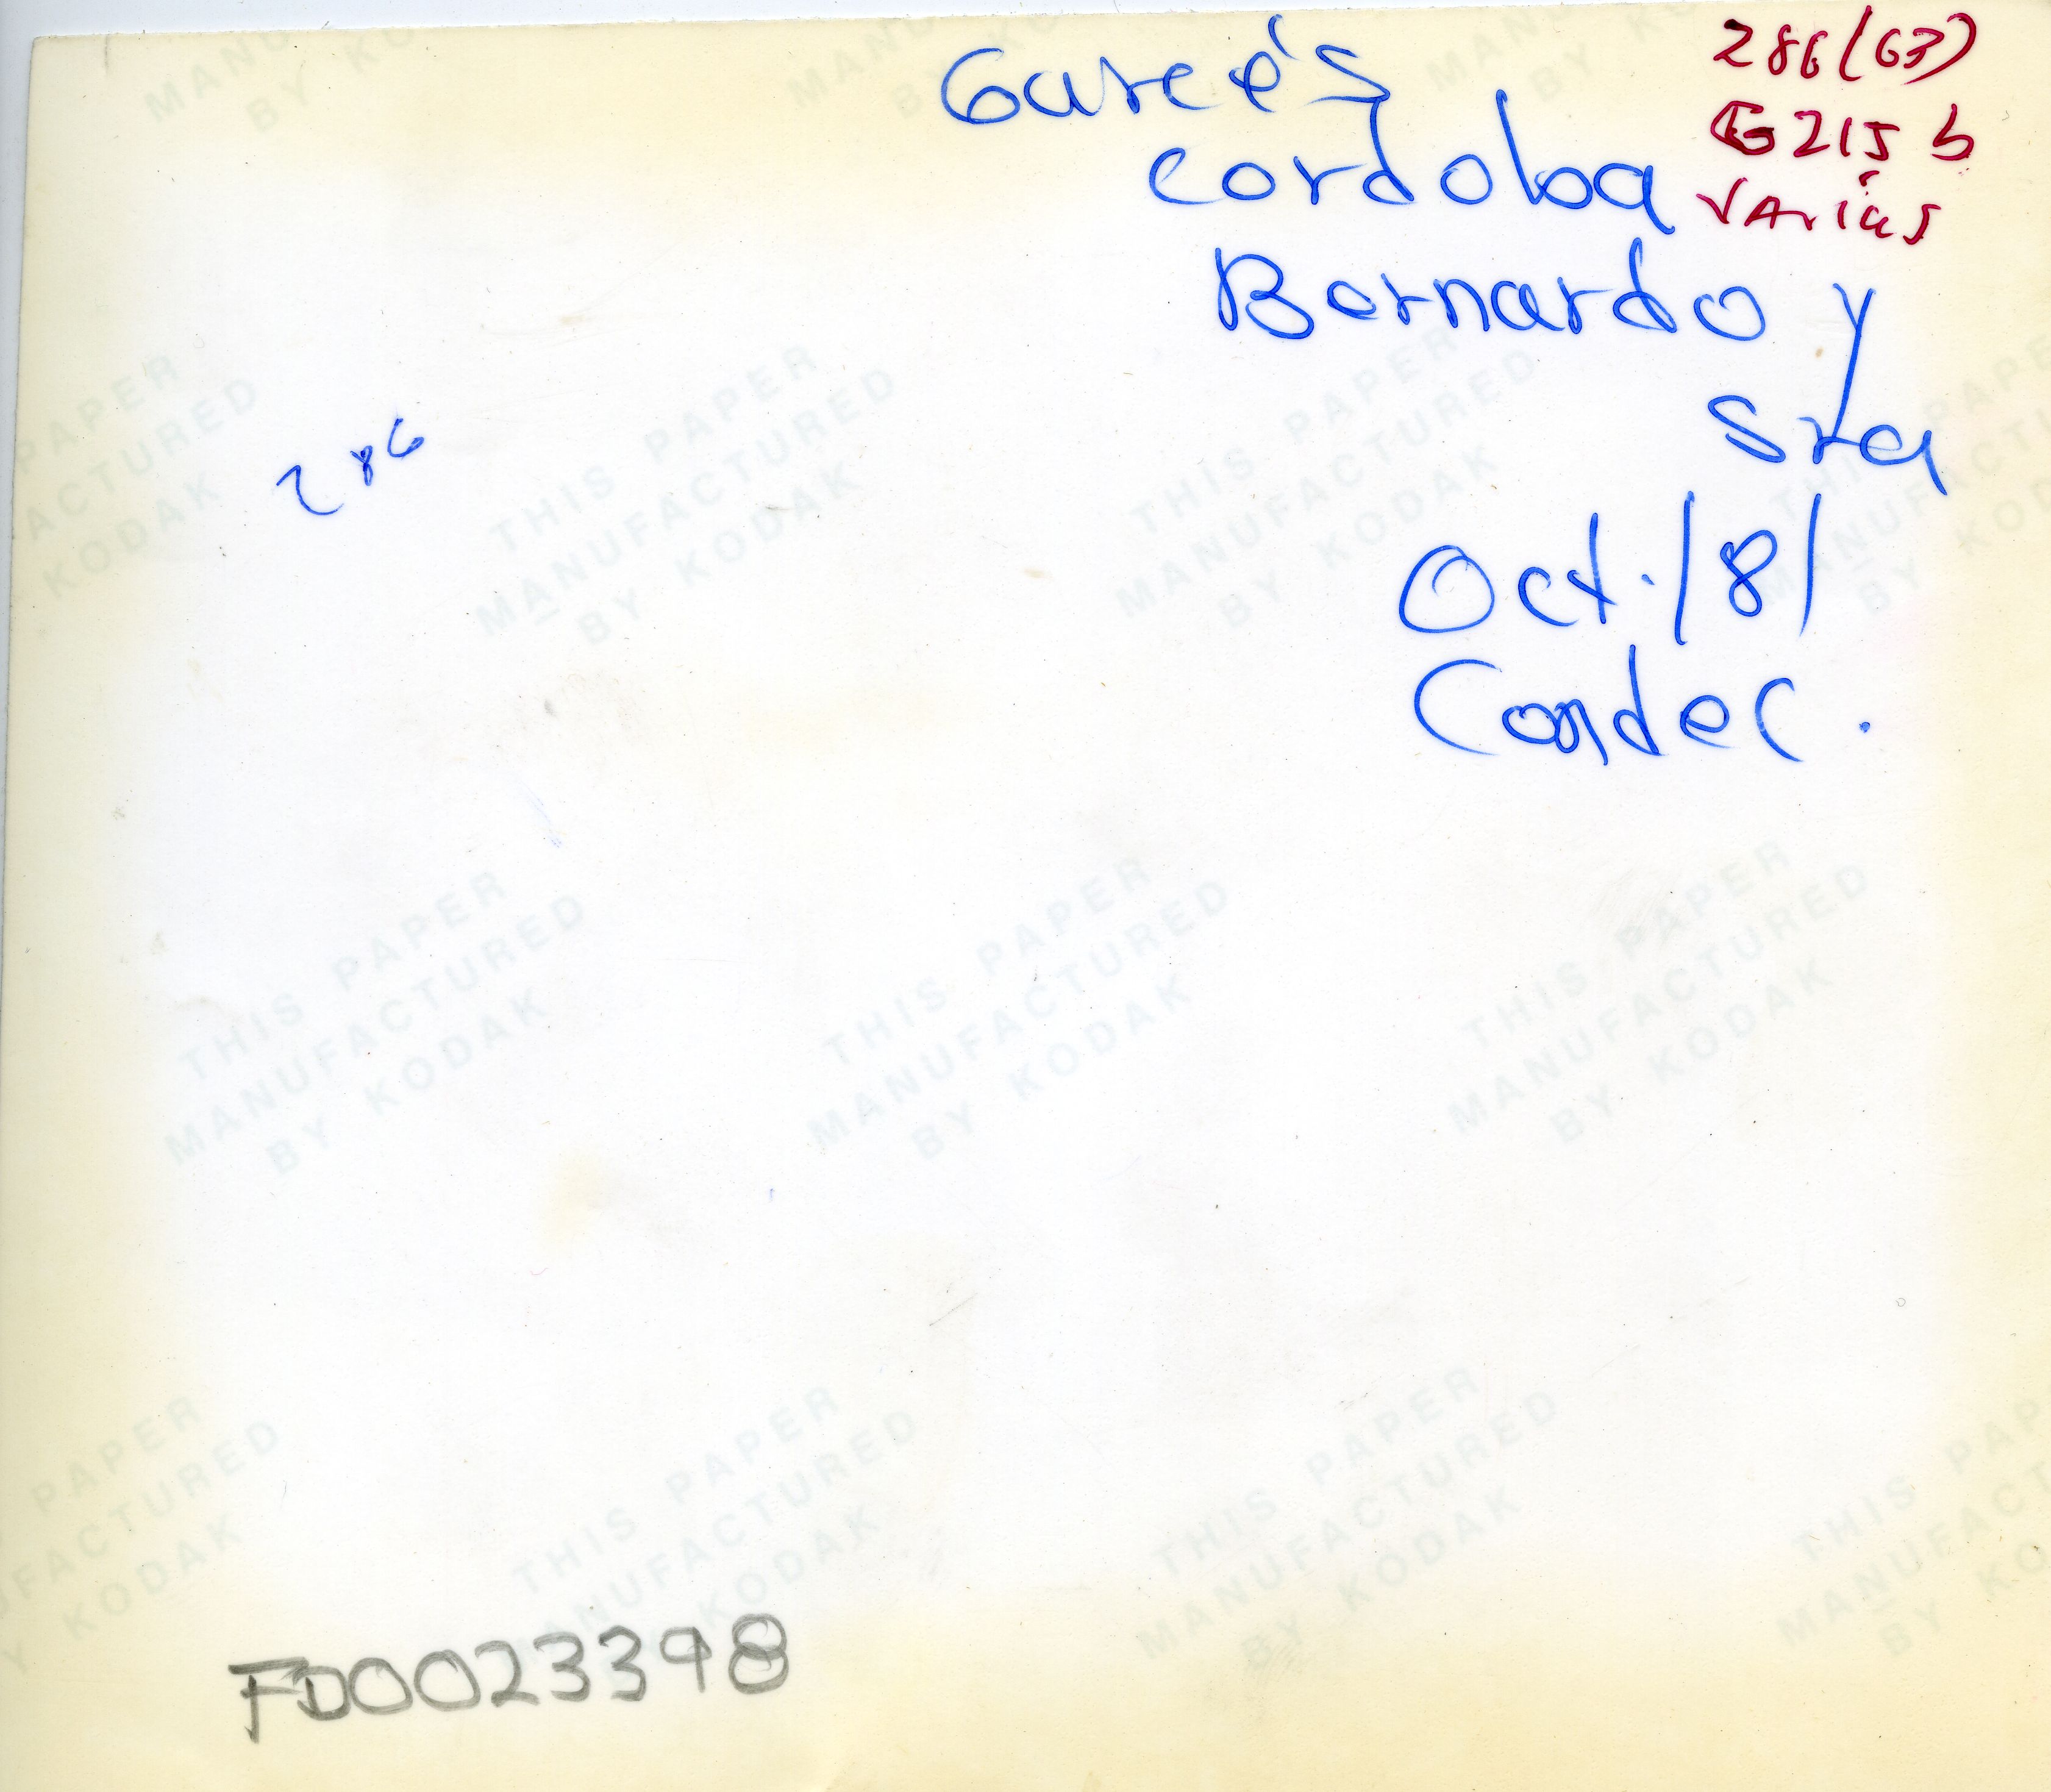 Garcés
Cordoba
Bernardo y
Sra
Oct./81
Condec.
286(63)
G215b
Varias
286
THIS PAPER
MANUFACTURED
BY KODAK
FD0023398